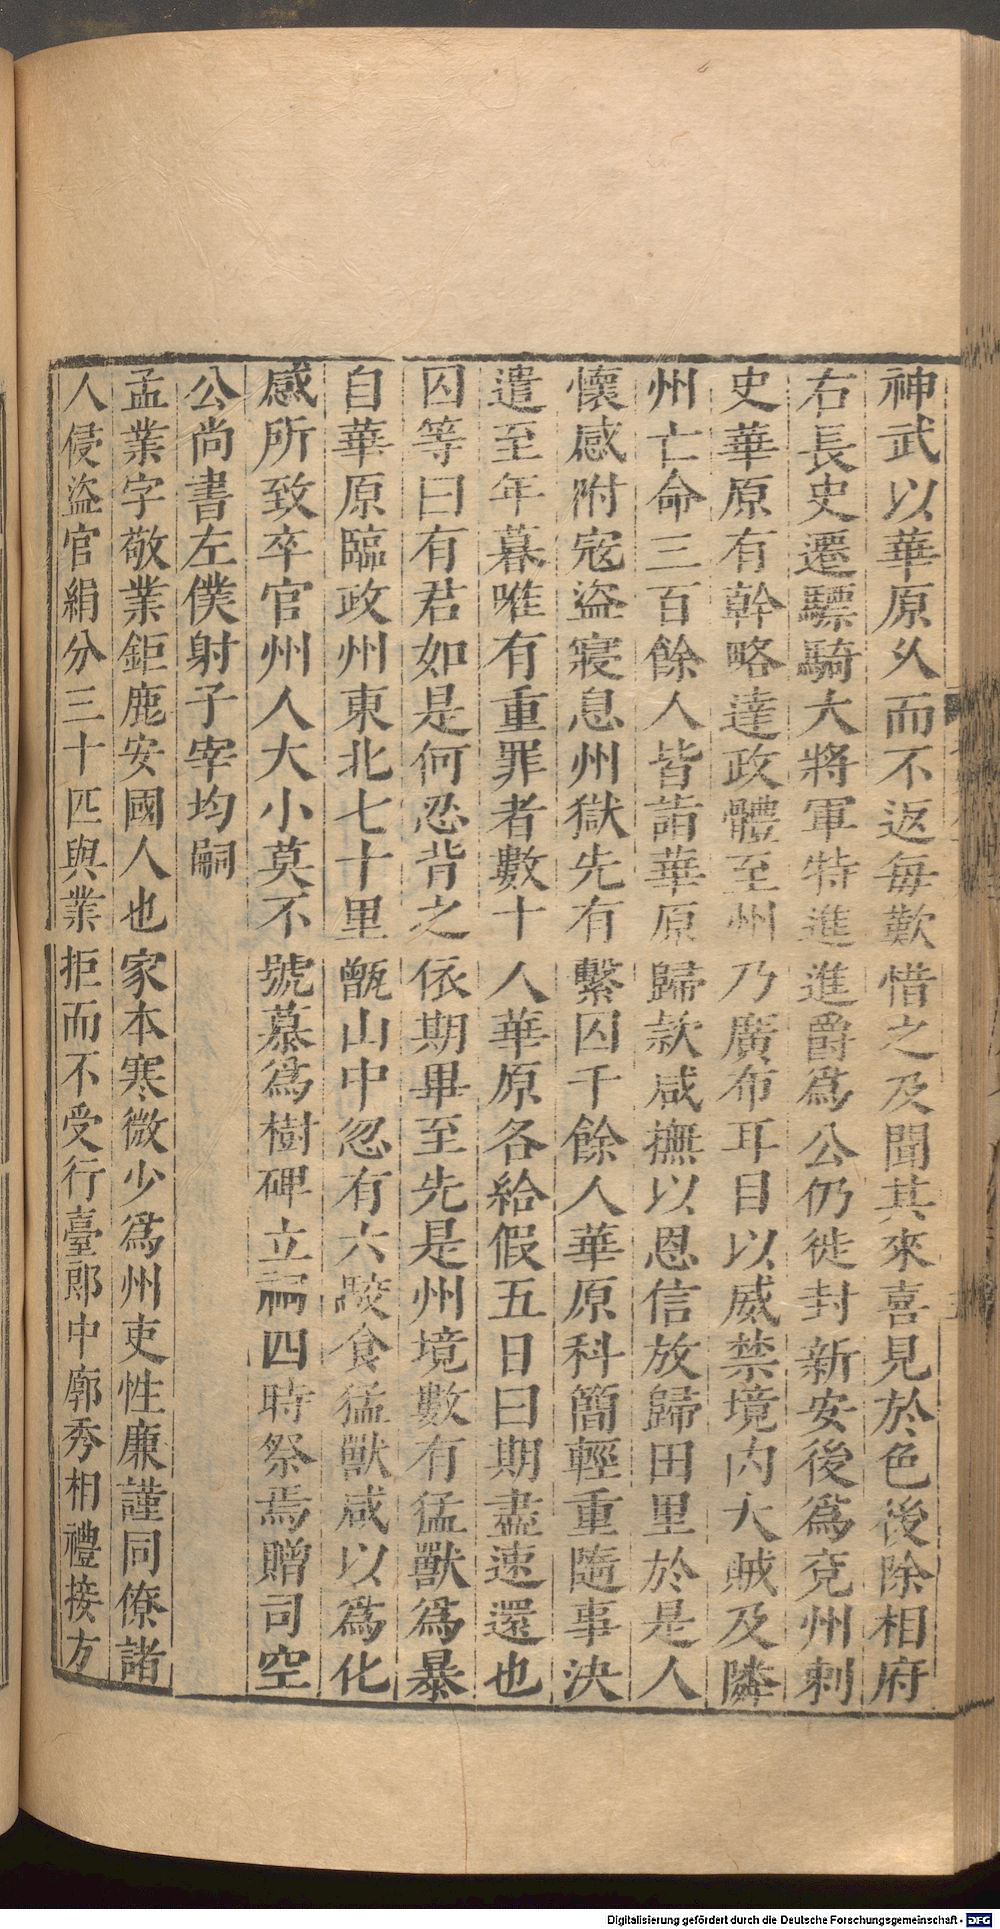 神武以華原久而不返毎歎惜之及聞其來喜見於色後除相府
右長史遷驃騎大將軍特進進爵爲公仍徙封新安後爲兗州刺
史華原有幹略達政體至州乃廣布耳目以威禁境内大賊及隣
州亡命三百餘人皆詣華原歸款咸撫以恩信放歸田里於是人
懷感附寇盜寢息州獄先有繫囚千餘人華原科簡輕重隨事決
遣至年暮唯有重罪者數十人華原各給假五日曰期盡速還也
囚等曰有君如是何忍背之依期畢至先是州境數有猛獸爲暴
自華原臨政州東北七十里甑山中忽有六駮食猛獸咸以爲化
感所致卒官州人大小莫不號慕爲樹碑立祠四時祭焉贈司空
公尚書左僕射子宰均嗣
孟業字敬業鉅鹿安國人也家本寒微少爲州吏性廉謹同僚諸
人侵盜官絹分三十匹與業拒而不受行臺郎中郭秀相禮接方
Digitalisierung gefördert durch die Deutsche Forschungsgemeinschaft - DFG